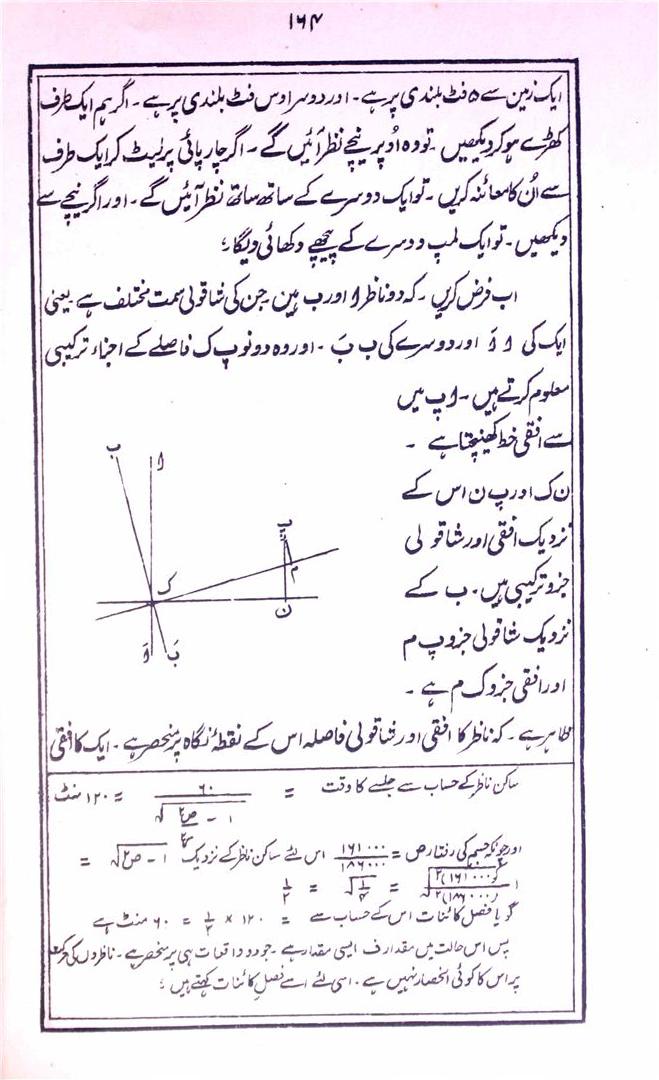 ۱۶۴
ایک زمین سے ۵ فٹ بلندی پر ہے ۔ اور دوسرا دس فٹ بلندی پر ہے ۔ اگر ہم ایک طرف
کھڑے ہو کر دیکھیں ۔ تو وہ اُوپر نیچے نظر آئیں گے ۔ اگر چارپائی پر لیٹ کر ایک طرف
سے اُن کا معائنہ کریں ۔ تو ایک دوسرے کے ساتھ ساتھ نظر آئیں گے ۔ اور اگر نیچے سے
دیکھیں ۔ تو ایک لمپ دوسرے کے پیچھے دکھائی دیگا ؛
اب فرض کریں ۔ کہ دو ناظر ا اور ب ہیں جن کی شاقولی سمت مختلف ہے یعنی
ایک کی ا اَ اور دوسرے کی ب بَ ۔ اور وہ دونو پ ک فاصلے کے اجزاء ترکیبی
معلوم کرتے ہیں ۔ ا پ میں
سے افقی خط کھینچتا ہے ۔
ن ک اور پ ن اس کے
نزدیک افقی اور شاقولی
جزو ترکیبی ہیں ۔ ب کے
نزدیک شاقولی جزو پ م
اور افقی جزو ک م ہے ۔
ب
ا
پ
م
ک
ن
اَ
بَ
ظاہر ہے ۔ کہ ناظر کا افقی اور شاقولی فاصلہ اس کے نقطۂ نگاہ پر منحصر ہے ۔ ایک کا افقی
ساکن ناظر کے حساب سے جلسے کا وقت = ۶۰ / √(۱ - ص۲/ع۲) = ۱۲۰ منٹ
اور چونکہ جسم کی رفتار ص = ۱۶۱۰۰۰ / ۱۸۶۰۰۰ اس لئے ساکن ناظر کے نزدیک √(۱ - ص۲) =
√(۱ - (۱۶۱۰۰۰)۲ / (۱۸۶۰۰۰)۲) = √(۱/۴) = ۱/۲
گویا فصل کائنات اس کے حساب سے = ۱۲۰ × ۱/۲ = ۶۰ منٹ ہے
پس اس حالت میں مقدار ف ایسی مقدار ہے ۔ جو دو واقعات ہی پر منحصر ہے ۔ ناظروں کی حرکت
پر اس کا کوئی انحصار نہیں ہے ۔ اسی لئے اسے فصلِ کائنات کہتے ہیں ؛